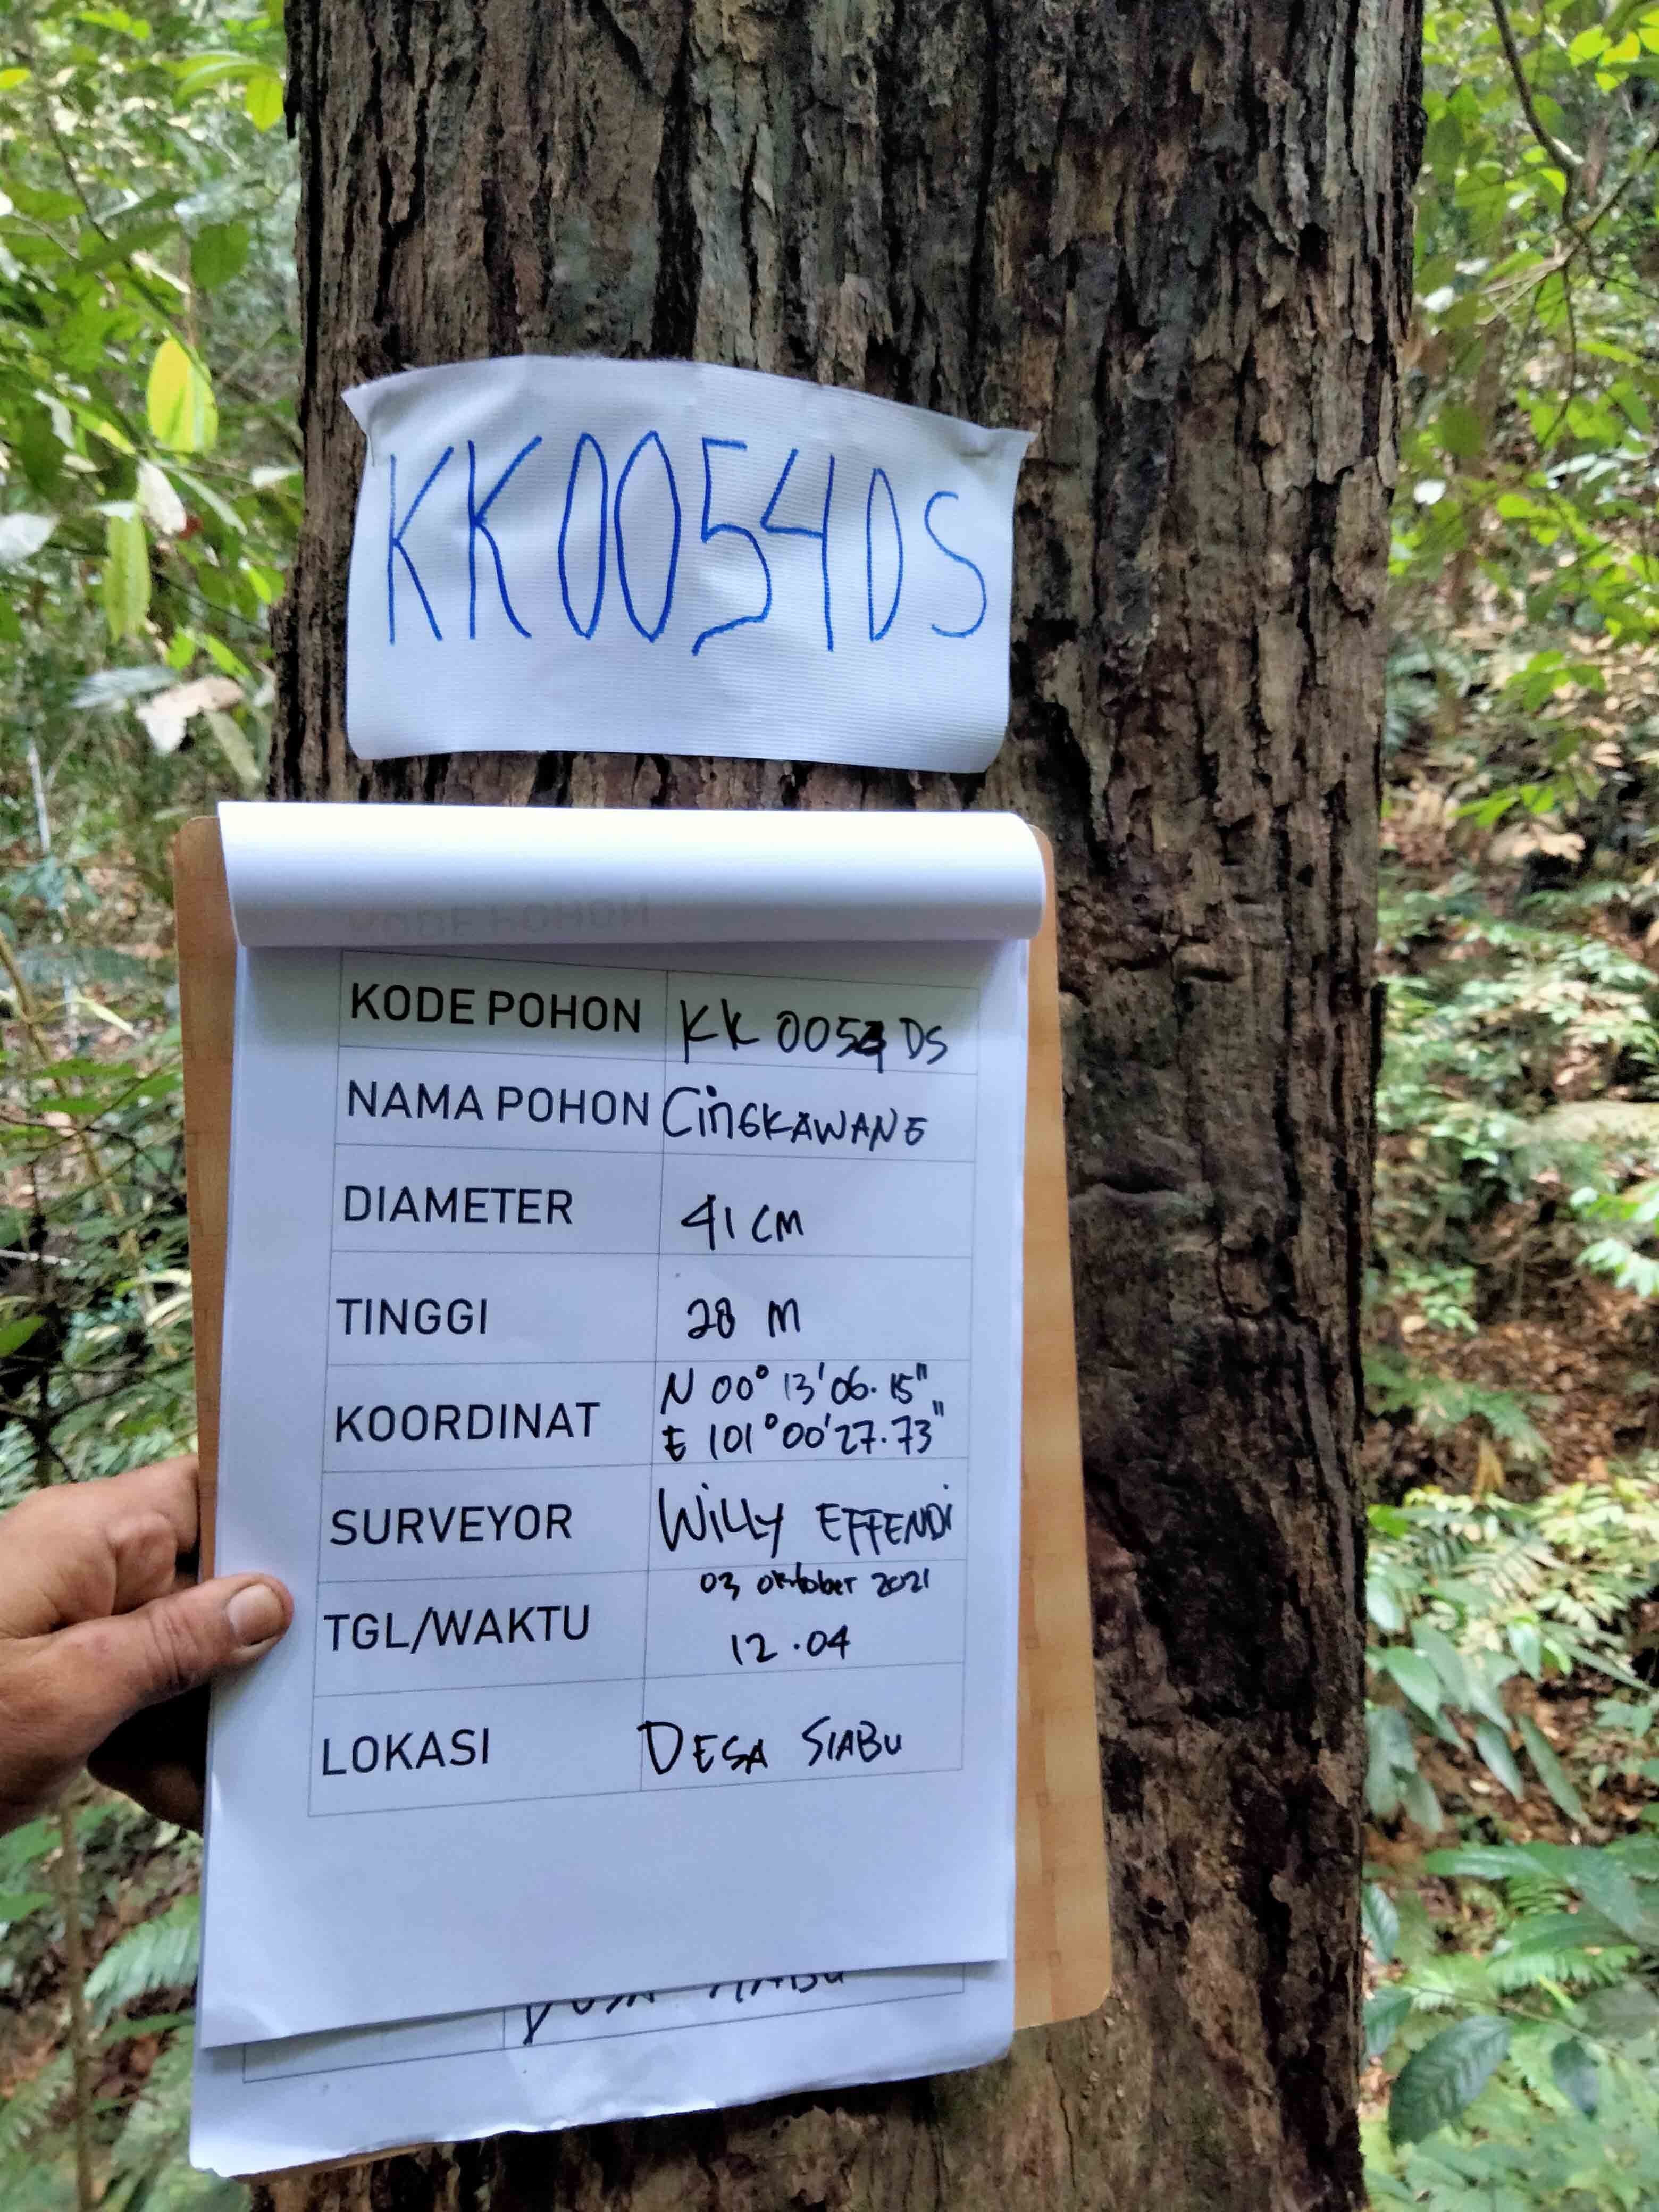 KK0054DS
KODE POHON KK 0054 DS
NAMA POHON CiNGKAWANG
DIAMETER 41 CM
TINGGI 28 M
KOORDINAT N 00° 13'06.15"
E 101°00'27.73"
SURVEYOR WiLLY EFFENDi
03 oktober 2021
TGL/WAKTU 12.04
LOKASI DESA SIABU